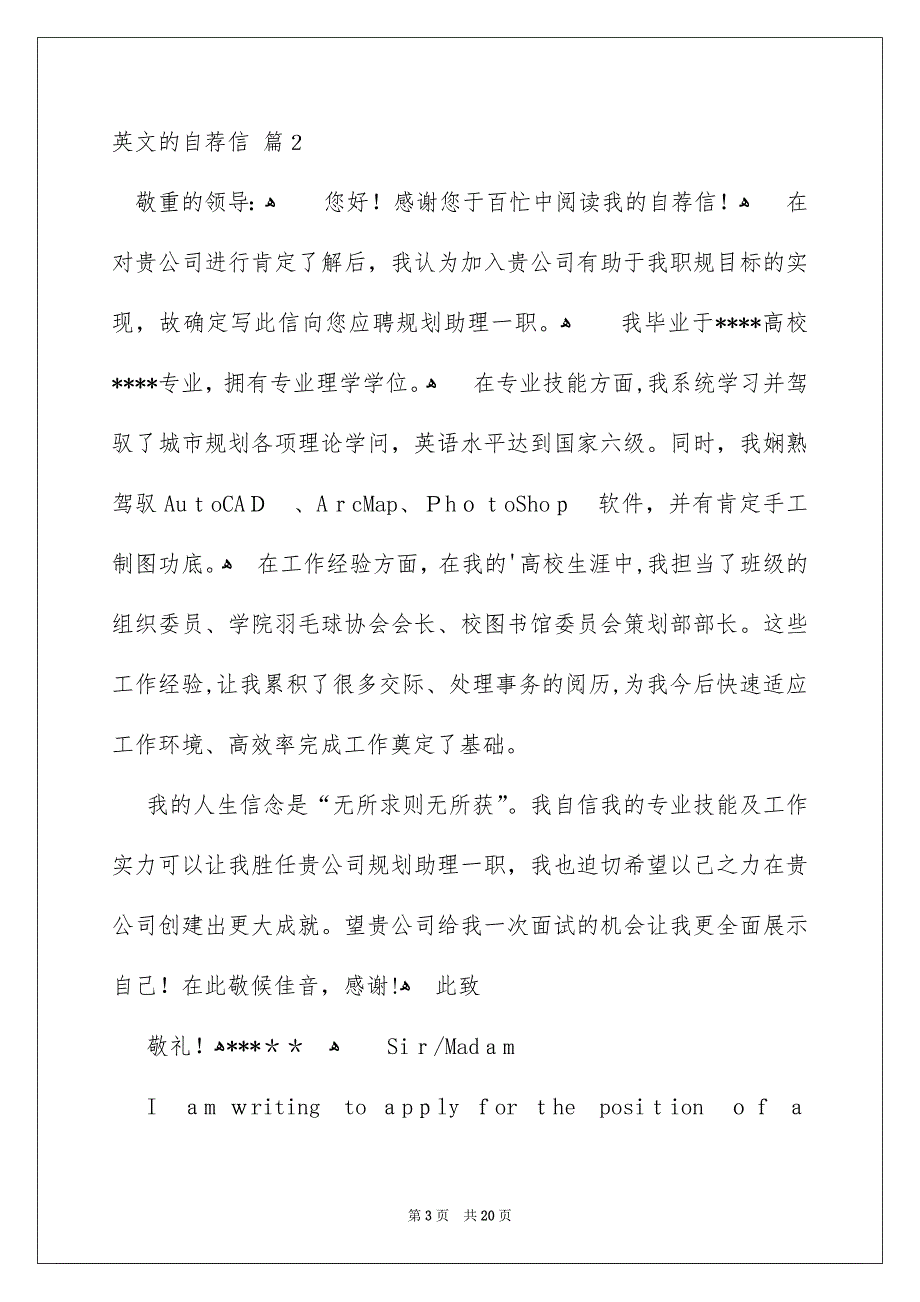 英文的自荐信 篇2
敬重的领导:ﻫ 您好！感谢您于百忙中阅读我的自荐信！ﻫ 在
对贵公司进行肯定了解后，我认为加入贵公司有助于我职规目标的实
现，故确定写此信向您应聘规划助理一职。ﻫ 我毕业于****高校
****专业，拥有专业理学学位。ﻫ 在专业技能方面,我系统学习并驾
驭了城市规划各项理论学问，英语水平达到国家六级。同时，我娴熟
驾驭AutoCAD 、ArcMap、PhotoShop 软件，并有肯定手工
制图功底。ﻫ 在工作经验方面，在我的'高校生涯中,我担当了班级的
组织委员、学院羽毛球协会会长、校图书馆委员会策划部部长。这些
工作经验,让我累积了很多交际、处理事务的阅历,为我今后快速适应
工作环境、高效率完成工作奠定了基础。
我的人生信念是“无所求则无所获”。我自信我的专业技能及工作
实力可以让我胜任贵公司规划助理一职，我也迫切希望以己之力在贵
公司创建出更大成就。望贵公司给我一次面试的机会让我更全面展示
自己！在此敬候佳音，感谢!ﻫ 此致
敬礼！ﻫ***＊＊ ﻫ Sir/Madam
I am writing to apply for the position of a
第3页 共20页